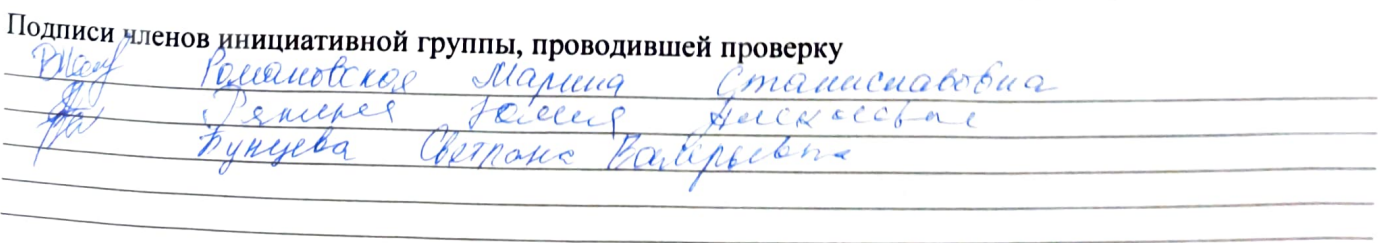 Подписи членов инициативной группы, проводившей проверку
Романовская Марина Станиславовна
Юлия Алексеевна
Бунцева Светлана Валерьевна